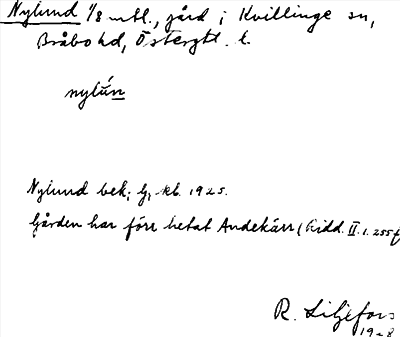 Nylund 1/8 mtl., gård i Kvillinge sn,
Bråbo hd, Östergtl. l.
nylún
Nylund bek; Gj, kb. 1925.
Gården har förr hetat Andekärr (Ridd. II. 1. 255 f
R. Liljefors
1928